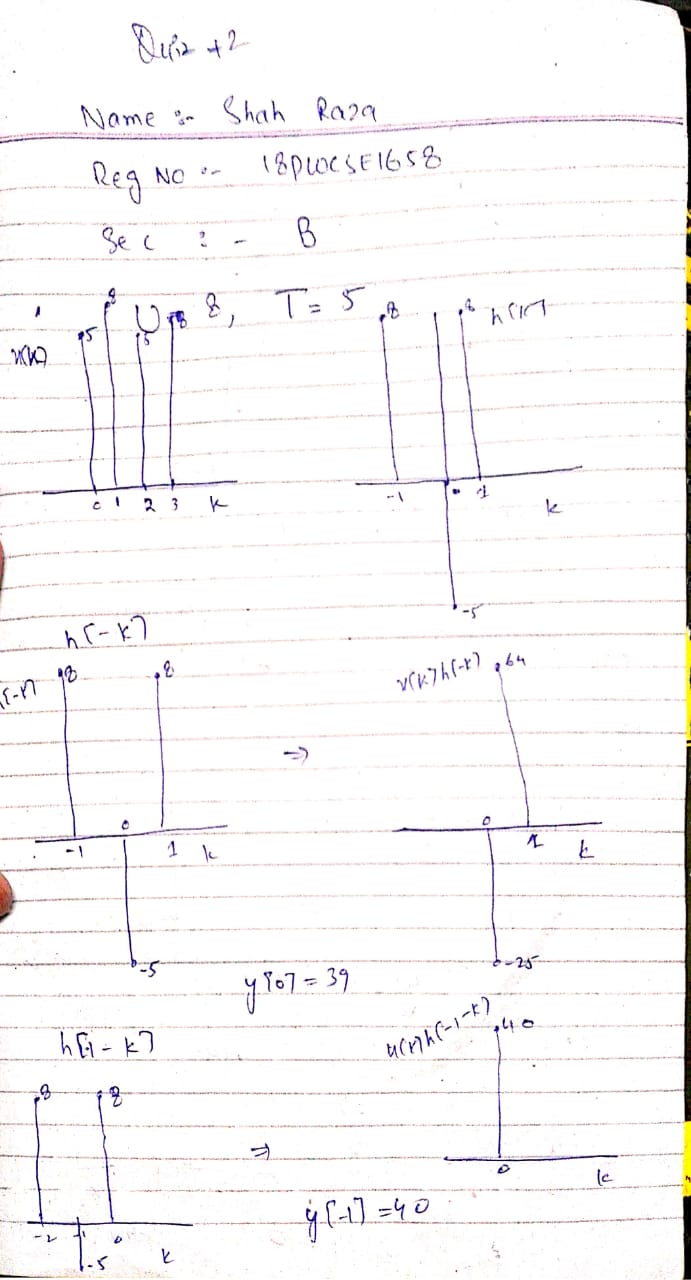 Quiz +2
Name :- Shah Raza
Reg No :- 18PWCSE1658
Sec :- B
U = 8, T = 5
5 8 5 8
0 1 2 3 k
8 8 h[k]
-1 0 1 k
-5
h[-k]
8 8
-1 0 1 k
-5
⇒
x[k]h[-k] 64
0 1 k
-25
y[0] = 39
h[-1-k]
8 8
-2 -1 0 k
-5
⇒
x[k]h[-1-k] 40
0 k
y[-1] = 40